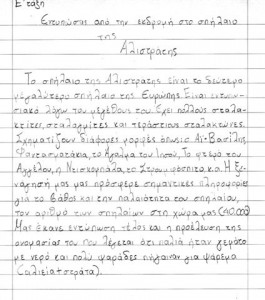 Ε΄ τάξη
Εντυπώσεις από την εκδρομή στο σπήλαιο
της
Αλιστράτης
Το σπήλαιο της Αλιστράτης είναι το δεύτερο
μεγαλύτερο σπήλαιο της Ευρώπης. Είναι εντυπω-
σιακό λόγω του μεγέθους του. Έχει πολλούς σταλα-
κτίτες, σταλαγμίτες και τεράστιους σταλακτώνες.
Σχηματίζουν διάφορες μορφές όπως: ο Αϊ-Βασίλης
Φαντασματάκια, το Άγαλμα του Ιησού, Το φτερό του
Αγγέλου, η Νεισκοπάπα, το Στρουμφόσπιτο κ.α. Η ξε-
νάγησή μας μας πρόσφερε σημαντικές πληροφορίες
για το βάθος και την παλαιότητα του σπηλαίου,
τον αριθμό των σπηλαίων στη χώρα μας (10.000)
Μας έκανε εντύπωση τέλος και η προέλευση της
ονομασίας του που λέγεται ότι παλιά ήταν γεμάτο
με νερό και πολύ ψαράδες πήγαιναν για ψάρεμα
(αλιεία + στράτα).